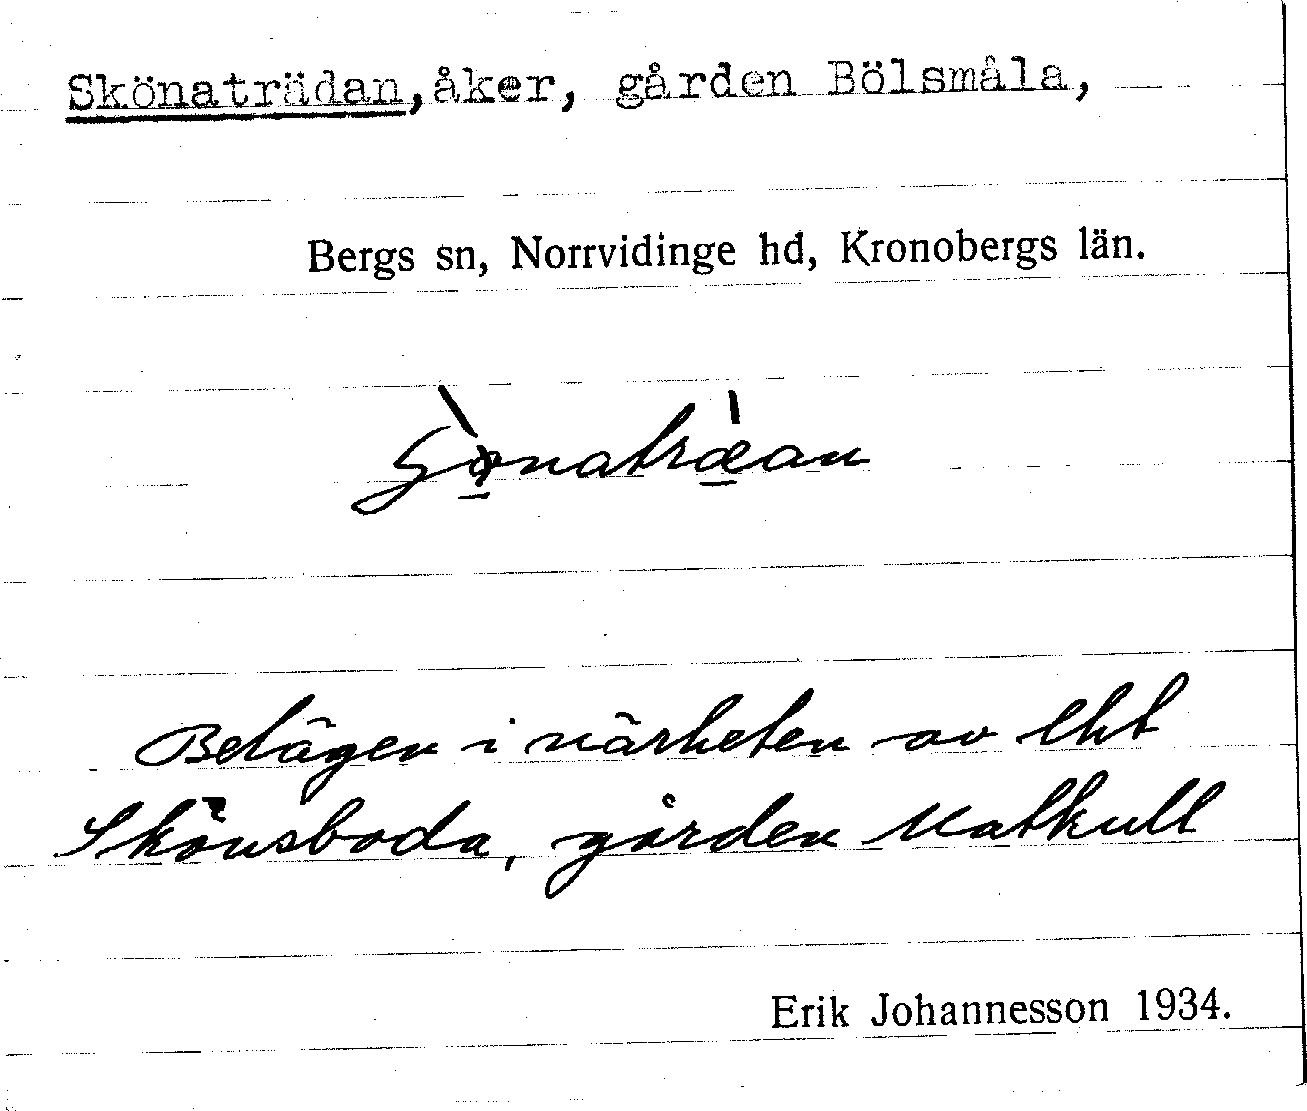 Skönaträdan, åker, gården Bölsmåla,
Bergs sn, Norrvidinge hd, Kronobergs län.
Belägen i närheten av lht
Skönsboda, gården Matkull
Erik Johannesson 1934.